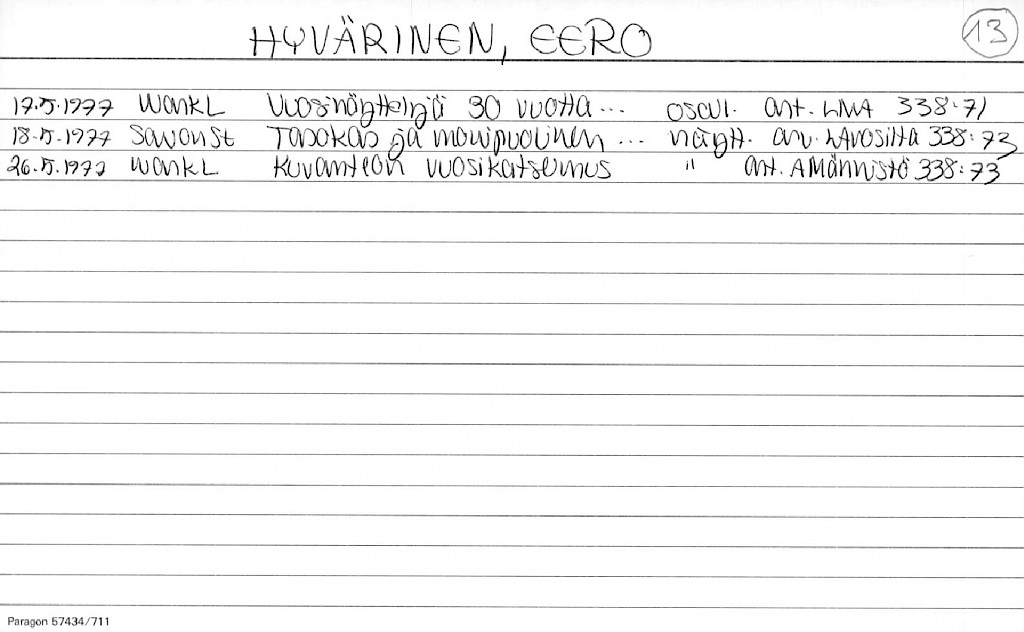 HYVÄRINEN, EERO
13
17.5.1977 WarkL Vuosinäyttelyjä 30 vuotta... osaul. art. LMA 338:71
18.5.1977 SavonSt Tasokas ja monipuolinen ... näytt. arv. 338:73
26.5.1977 WarkL Kuvanteon vuosikatselmus " art. AMännistö 338:73
Paragon 57434/711